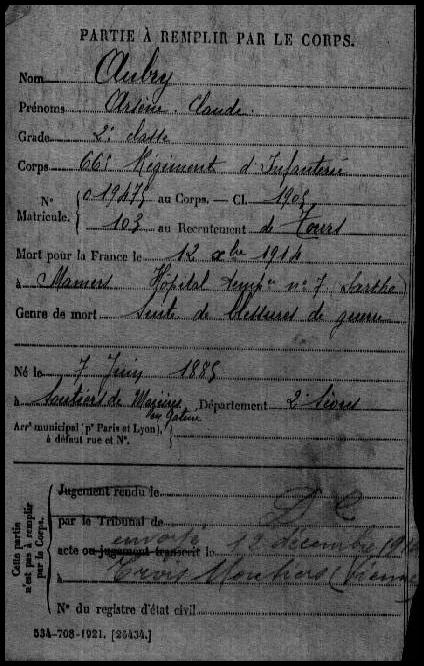 PARTIE À REMPLIR PAR LE CORPS.
Nom Aubry
Prénoms Arsène Claude
Grade 2e classe
Corps 66e Régiment d'Infanterie
N° Matricule. { 019475 au Corps. — Cl. 1905
103 au Recrutement de Tours
Mort pour la France le 12 xbre 1914
à Mamers Hôpital temp. n° 7 Sarthe
Genre de mort Suite de blessures de guerre
Né le 7 Juin 1885
à Soutiers de Mazières en Gatine Département 2e Sèvres
Arrt municipal (pr Paris et Lyon), à défaut rue et N°. {
Cette partie n'est pas à remplir par le Corps.
Jugement rendu le D C
par le Tribunal de
envoyé
acte ou jugement transcrit le 12 décembre
à Trois Moutiers (Vienne
N° du registre d'état civil
534-708-1921. [26434.]